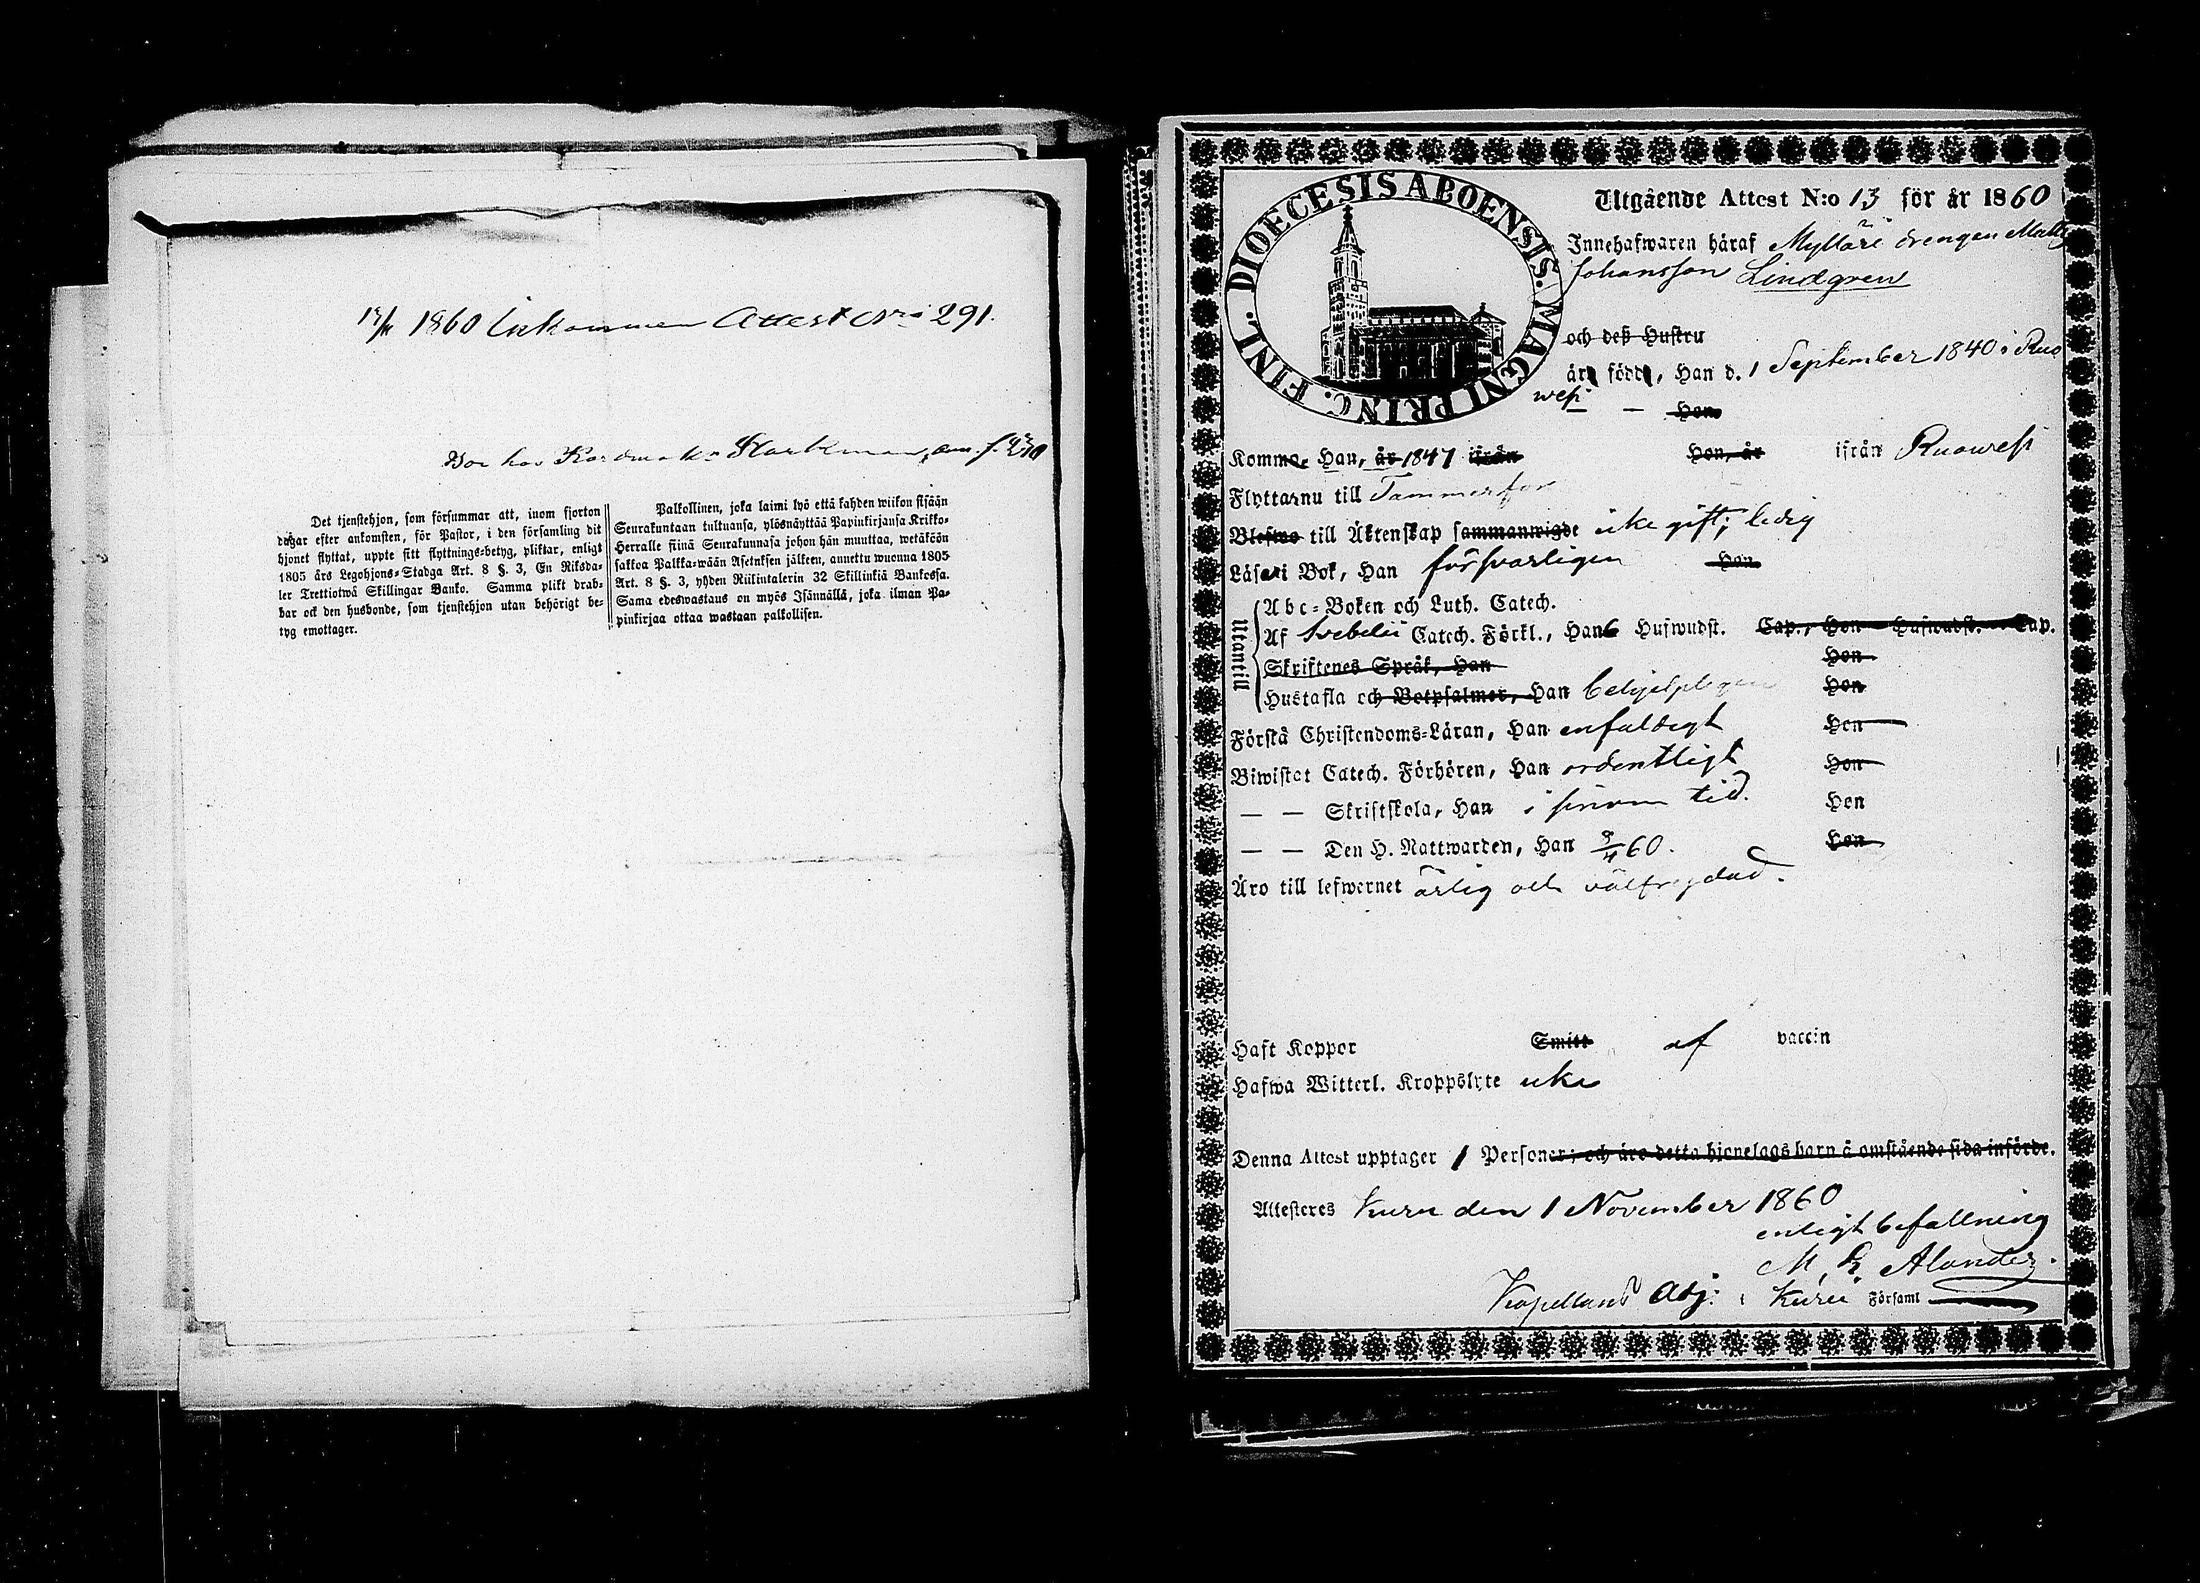 1860 Inkommen Attest N:ro 291.
Bor hos
Det tjenstehjon, som försummar att, inom fjorton
dagar efter ankomsten, för Pastor, i den församling dit
hjonet flyttat, uppte sitt flyttnings-betyg, pliktar, enligt
1805 års Legohjons-Stadga Art. 8 §. 3, En Riksda-
ler Trettiotwå Skillingar Banko. Samma plikt drab-
bar ock den husbonde, som tjenstehjon utan behörigt be-
tyg emottager.
Palkollinen, joka laimi lyö että kahden wiikon sisään
Seurakuntaan tultuansa, ylösnäyttää Papinkirjansa Kirkko-
Herralle siinä Seurakunnasa johon hän muuttaa, wetäköön
sakkoa Palkka-wään Asetuksen jälkeen, annettu wuonna 1805
Art. 8 §. 3, yhden Riksintalerin 32 Skillinkiä Bankossa.
Sama edeswastaus on myös Isännällä, joka ilman Pa-
pinkirjaa ottaa wastaan palkollisen.
DIOECESIS ABOENSIS. MAGNI PRINC. FINL.
Utgående Attest N:o 13 för år 1860
Innehafwaren häraf Mylläri drengen Matts
Johansson Lindgren
och deß Hustru
är född, Han d. 1 September 1840 i Ruo
wesi — Hon
Komme, Han, år 1847 ifrån Hon, år ifrån Ruowesi
Flyttar nu till Tammerfors
Blefwo till Äktenskap sammanwigde icke gift; ledig
Läser i Bok, Han försvarligen Hon
Utantill
Abc-Boken och Luth. Catech.
Af Svebelii Catech. Förkl., Han 6 Hufwudst. Cap., Hon Hufwudst. Cap.
Skriftenes Språk, Han Hon
Hustafla och Botpsalmer, Han behjelpligen Hon
Förstå Christendoms-Läran, Han enfaldigt Hon
Biwistat Catech. Förhören, Han ordentligt Hon
— — Skriftskola, Han i sinom tid. Hon
— — Den H. Nattwarden, Han 8/4 60. Hon
Äro till lefwernet ärlig och välfrejdad.
Haft Koppor Smitt af vaccin
Hafwa Witterl. Kroppslyte icke
Denna Attest upptager 1 Personer; och äro detta hjonelags barn å omstående sida införde.
Attesteres Kuru den 1 November 1860
enligt befallning
M. G. Alander.
Kapellans Adj: i Kuru Församl